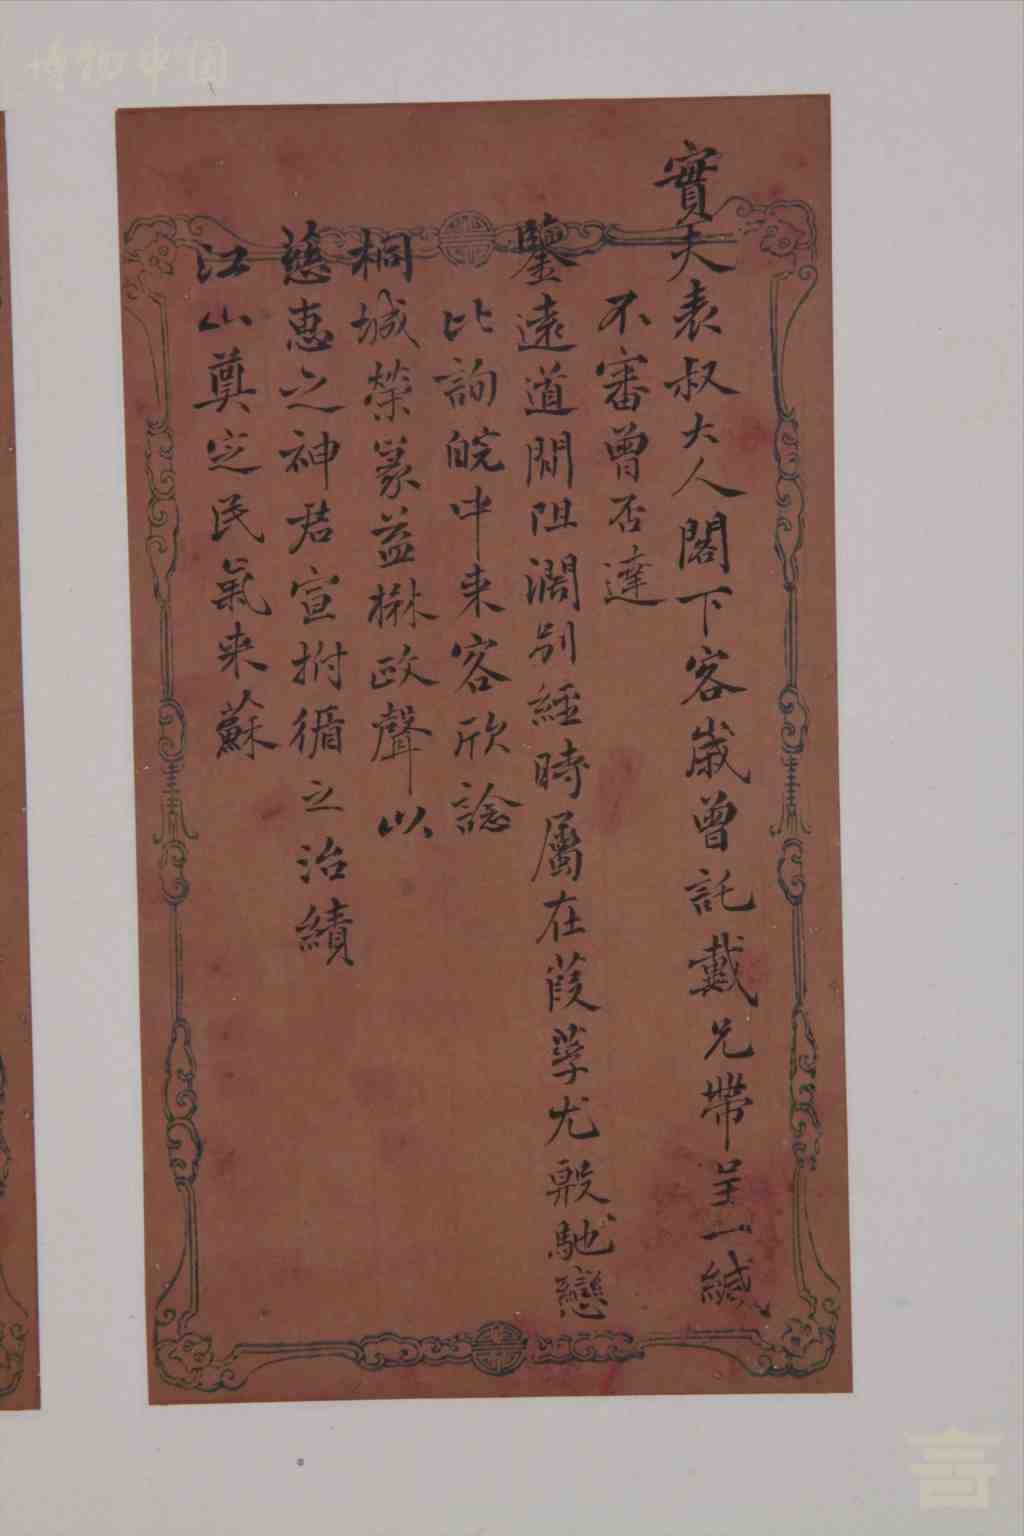 實夫表叔大人閣下客歲曾託戴兄帶呈一緘
不審曾否達
鑒遠道間阻濶別經時屬在葭莩尤殷馳戀
比詢皖中来客欣諗
桐城榮篆益楙政聲以
慈惠之神君宣拊循之治績
江山奠定民氣来蘇
博物中国